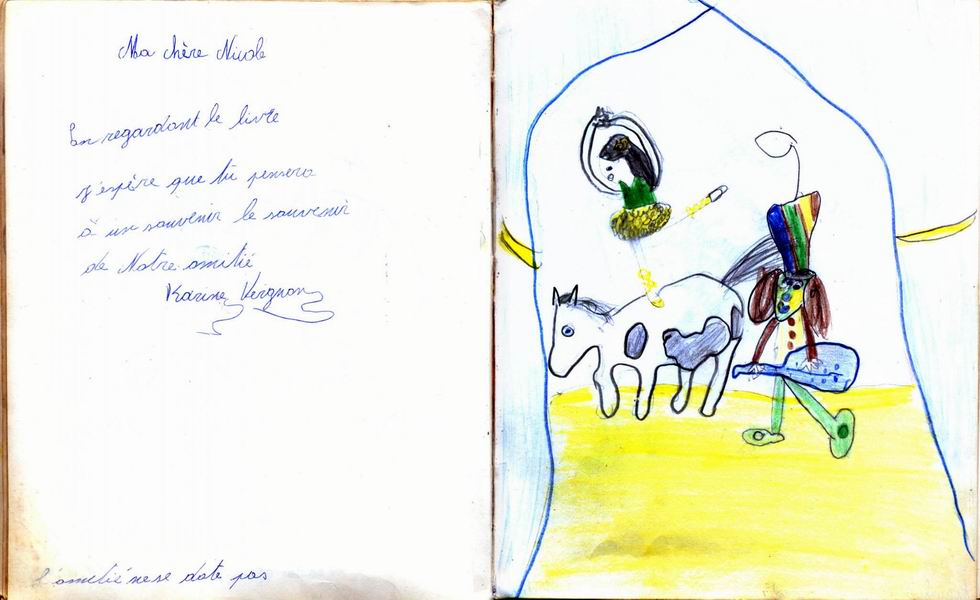 Ma chère Nicole
En regardant le livre
j'espère que tu pensera
à un souvenir le souvenir
de Notre amitié
Karine Vergnon
l'amitié ne se date pas